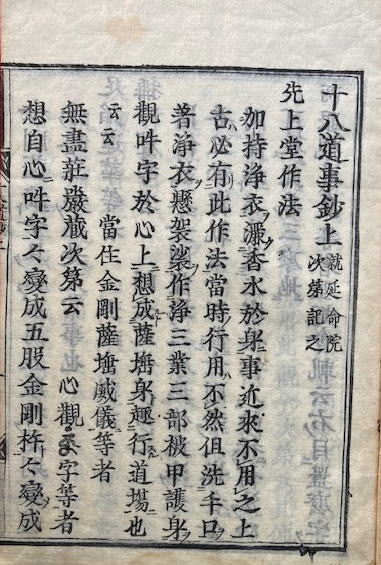 十八道事鈔上 就延命院次第記之
先上堂作法
加持淨衣灑香水於身事近來不用之上
古必有此作法當時行用不然但洗手口
著淨衣懸袈裟作淨三業三部被甲護身
觀吽字於心上想成薩埵身趣行道場也
云云 當住金剛薩埵威儀等者
無盡莊嚴藏次第云 心觀字等者
想自心吽字々變成五股金剛杵々變成